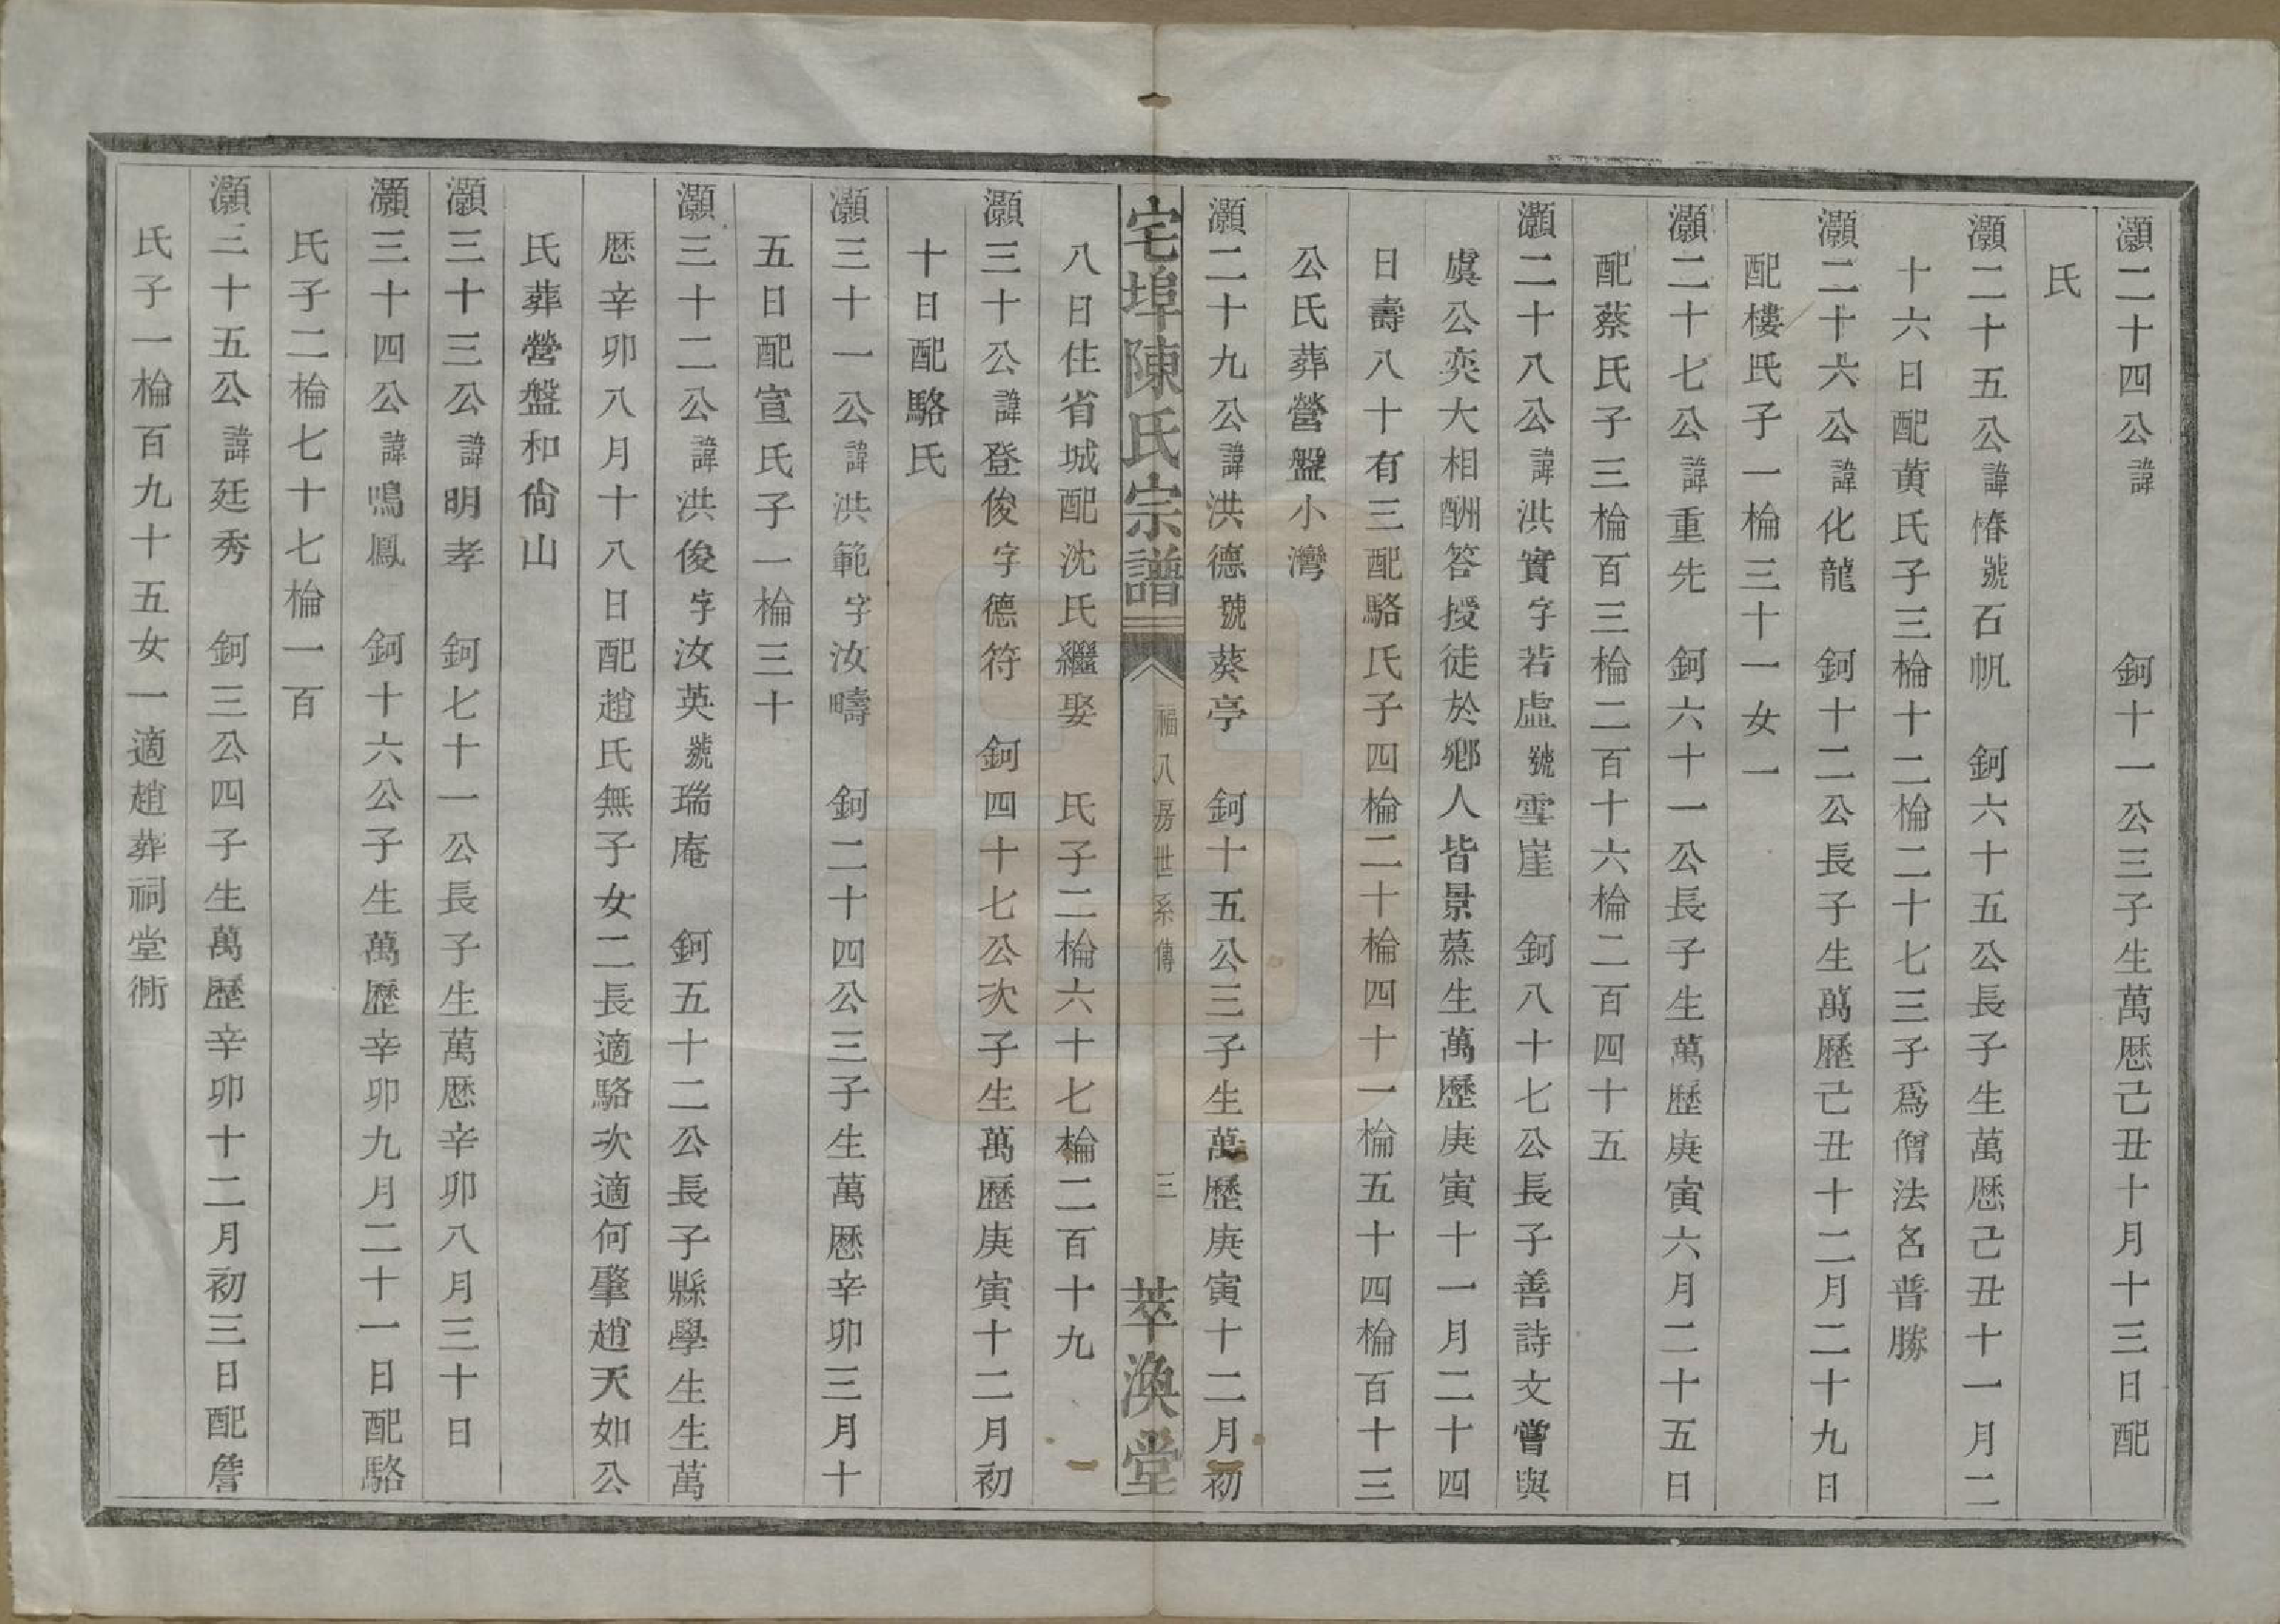 灝二十四公諱　　　鈳十一公三子生萬厯己丑十月十三日配
氏
灝二十五公諱椿號石帆　鈳六十五公長子生萬厯己丑十一月二
十六日配黄氏子三棆十二棆二十七三子爲僧法名普勝
灝二十六公諱化龍　鈳十二公長子生萬歷己丑十二月二十九日
配樓氏子一棆三十一女一
灝二十七公諱重先　鈳六十一公長子生萬歷庚寅六月二十五日
配蔡氏子三棆百三棆二百十六棆二百四十五
灝二十八公諱洪實字若虛號雪崖　鈳八十七公長子善詩文嘗與
虞公奕大相酬答授徒於鄉人皆景慕生萬歷庚寅十一月二十四
日壽八十有三配駱氏子四棆二十棆四十一棆五十四棆百十三
公氏葬營盤小灣
灝二十九公諱洪德號葵亭　鈳十五公三子生萬歷庚寅十二月初
宅埠陳氏宗譜　福八房世系傳　三　萃渙堂
八日住省城配沈氏繼娶　氏子二棆六十七棆二百十九
灝三十公諱登俊字德符　鈳四十七公次子生萬歷庚寅十二月初
十日配駱氏
灝三十一公諱洪範字汝疇　鈳二十四公三子生萬厯辛卯三月十
五日配宣氏子一棆三十
灝三十二公諱洪俊字汝英號瑞庵　鈳五十二公長子縣學生生萬
厯辛卯八月十八日配趙氏無子女二長適駱次適何肇趙天如公
氏葬營盤和尙山
灝三十三公諱明孝　鈳七十一公長子生萬厯辛卯八月三十日
灝三十四公諱鳴鳳　鈳十六公子生萬歷辛卯九月二十一日配駱
氏子二棆七十七棆一百
灝三十五公諱廷秀　鈳三公四子生萬歷辛卯十二月初三日配詹
氏子一棆百九十五女一適趙葬祠堂衕